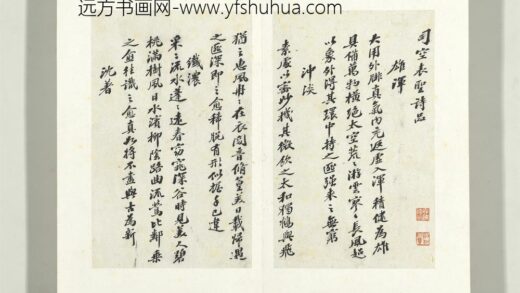 远方书画网- www.yfshuhua.com
司空表聖詩品
雄渾
大用外腓真氣內充返虛入渾積健為雄
具備萬物橫絕太空荒〻油雲寥〻長風超
以象外得其環中持之匪強來之無窮
沖淡
素處以默妙機其微飲之太和獨鶴與飛
猶之惠風冉〻在衣閱音脩篁美曰載歸遇
之匪深即之愈稀脫有形似握手已違
纖濃
采〻流水蓬〻遠春窈窕深谷時見美人碧
桃滿樹風日水濱柳陰路曲流鶯比鄰乘
之愈往識之愈真如將不盡與古為新
沈著